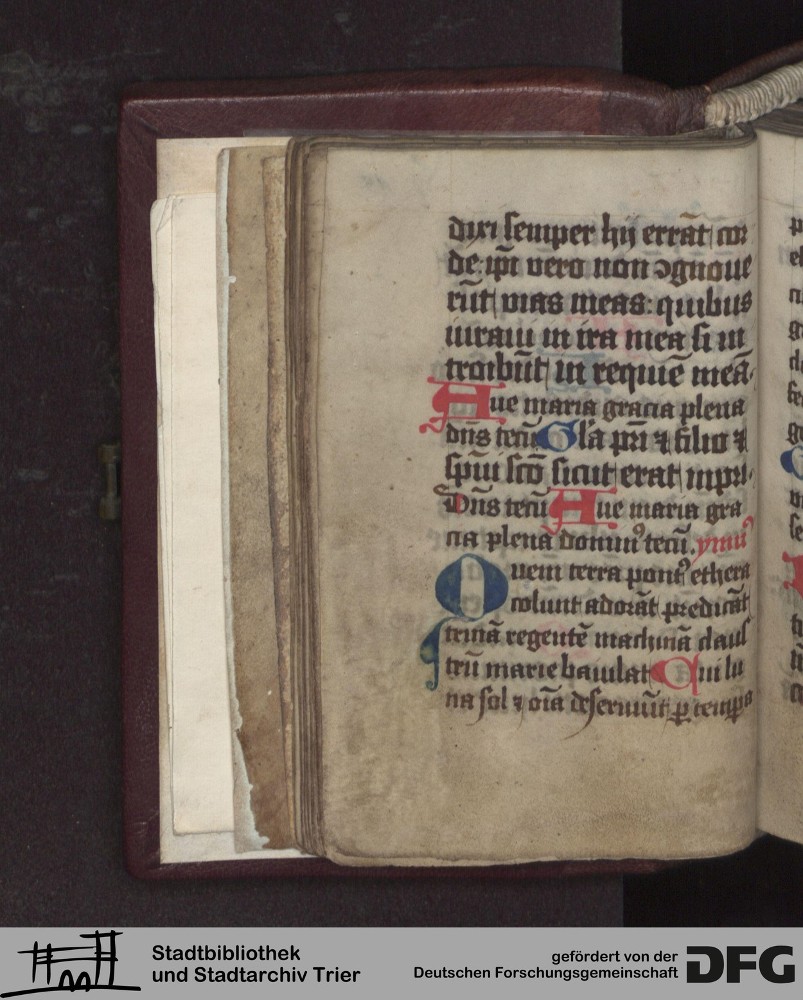 dixi semper hij errāt cor
de: ip̄i vero non ↄgnoue
rūt vias meas: quibus
iuraui in ira mea si in
troibūt in requiē meā.
Aue maria gracia plena
dn̄s tecū Gl̄a pr̄i ⁊ filio ⁊
spūi scō sicut erat in pri.
Dn̄s tecū Aue maria gra
cia plena domin⁹ tecū. ymn⁹
Quem terra pont⁹ ethera
colunt adorāt predicāt
trinā regentē machinā claus
trū marie baiulat Qui lu
na sol ⁊ oīa deseruiūt ꝑ tempa
Stadtbibliothek
und Stadtarchiv Trier
gefördert von der
Deutschen Forschungsgemeinschaft
DFG